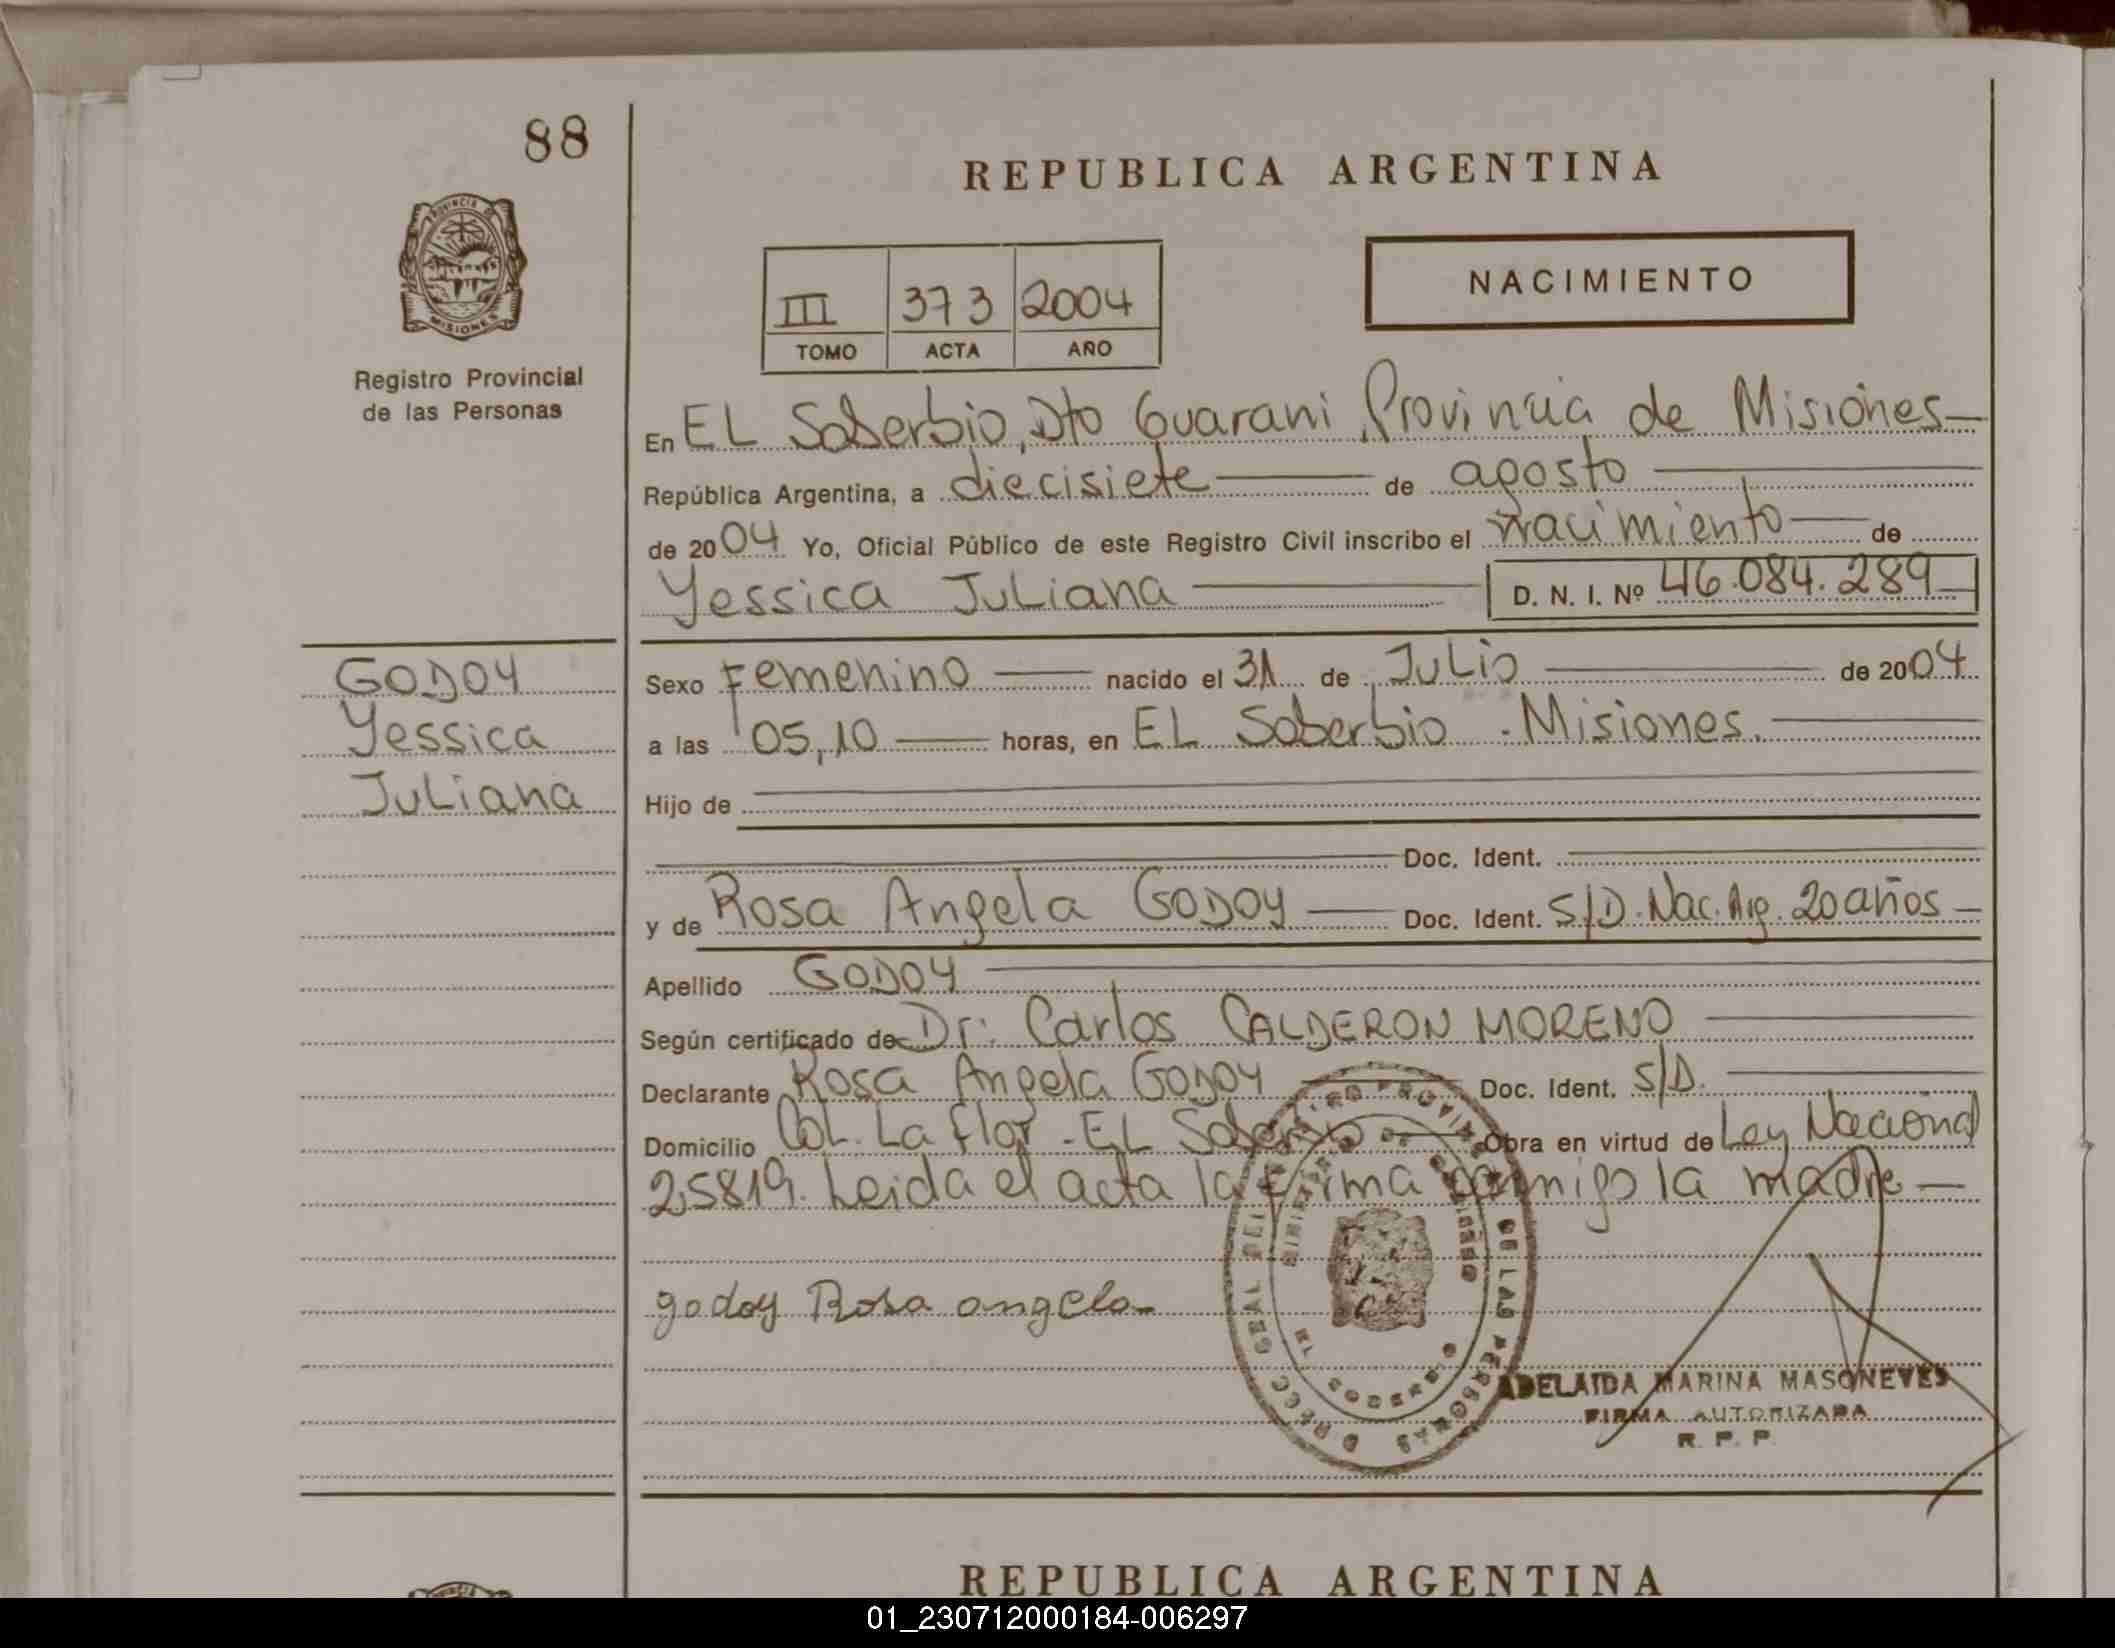 88
REPUBLICA ARGENTINA
PROVINCIA DE
MISIONES
Registro Provincial
de las Personas
III 373 2004
TOMO ACTA AÑO
NACIMIENTO
En EL Soberbio, Dto Guarani Provincia de Misiones
República Argentina, a diecisiete de agosto
de 2004 Yo, Oficial Público de este Registro Civil inscribo el nacimiento de
Yessica Juliana D. N. I. Nº 46.084.289
GODOY
Yessica
Juliana
Sexo Femenino nacido el 31 de Julio de 2004
a las 05,10 horas, en EL Soberbio - Misiones.
Hijo de
Doc. Ident.
y de Rosa Angela GODOY Doc. Ident. S/D. Nac. Arg. 20 años
Apellido GODOY
Según certificado de Dr. Carlos CALDERON MORENO
Declarante Rosa Angela GODOY Doc. Ident. S/D.
Domicilio Col. La Flor - EL Soberbio Obra en virtud de Ley Nacional
25819. Leida el acta la firma conmigo la madre
godoy Rosa angela
DE LAS PERSONAS
ADELAIDA MARINA MASONEVES
FIRMA AUTORIZADA
R. P. P.
REPUBLICA ARGENTINA
01_230712000184-006297